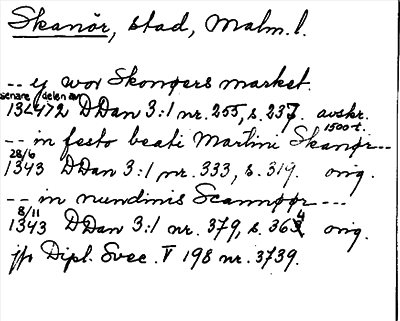 Skanör, stad, Malm. l.
-- y wor Skonøers market.
senare delen av
134472 DDan 3:1 nr. 255, s. 237. avskr. 1500-t.
-- in festo beati Martini Skanør---
28/6
1343 DDan 3:1 nr. 333, s. 319. orig.
-- in nundinis Scannøør ---
8/11
1343 DDan 3:1 nr. 379, s. 364 orig.
jfr Dipl. Svec. V 198 nr. 3739.